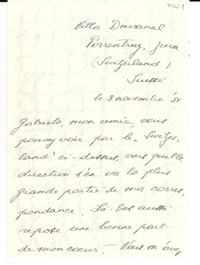 Villa Duvanel
Porrentruy, Jura
(Switzerland)
Suisse
le 3 novembre '51
Gabriela, mon amie, vous
pouvez voir par le "Switzer-
land" ci-dessus, vers quelle
direction s'en va la plus
grande partie de ma corres-
pondance. Là-bas aussi
repose une bonne part
de mon coeur. — Vous m'avez